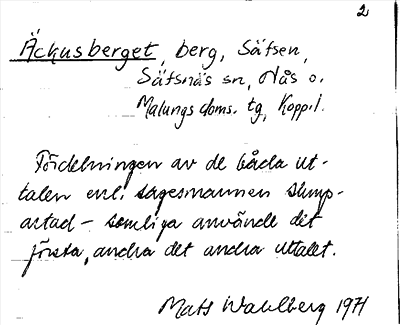 2
Äckusberget, berg, Säfsen,
Säfsnäs sn, Nås o.
Malungs doms. tg, Kopp.l.
Fördelningen av de båda ut-
talen enl. sagesmannen slump-
artad – somliga använde det
första, andra det andra uttalet.
Mats Wahlberg 1971